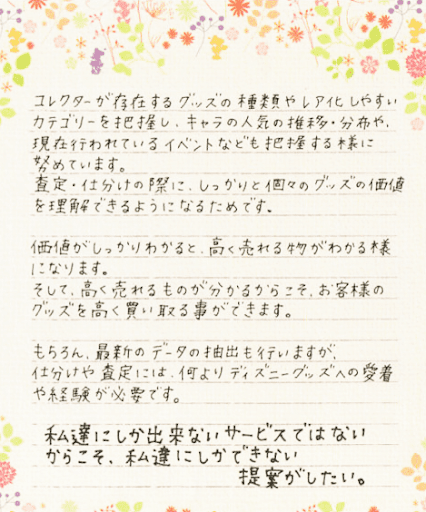 コレクターが存在するグッズの種類やレア化しやすい
カテゴリーを把握し、キャラの人気の推移・分布や、
現在行われているイベントなども把握する様に
努めています。
査定・仕分けの際に、しっかりと個々のグッズの価値
を理解できるようになるためです。
価値がしっかりわかると、高く売れる物がわかる様
になります。
そして、高く売れるものが分かるからこそ、お客様の
グッズを高く買い取る事ができます。
もちろん、最新のデータの抽出も行いますが、
仕分けや査定には、何よりディズニーグッズへの愛着
や経験が必要です。
私達にしか出来ないサービスではない
からこそ、私達にしかできない
提案がしたい。